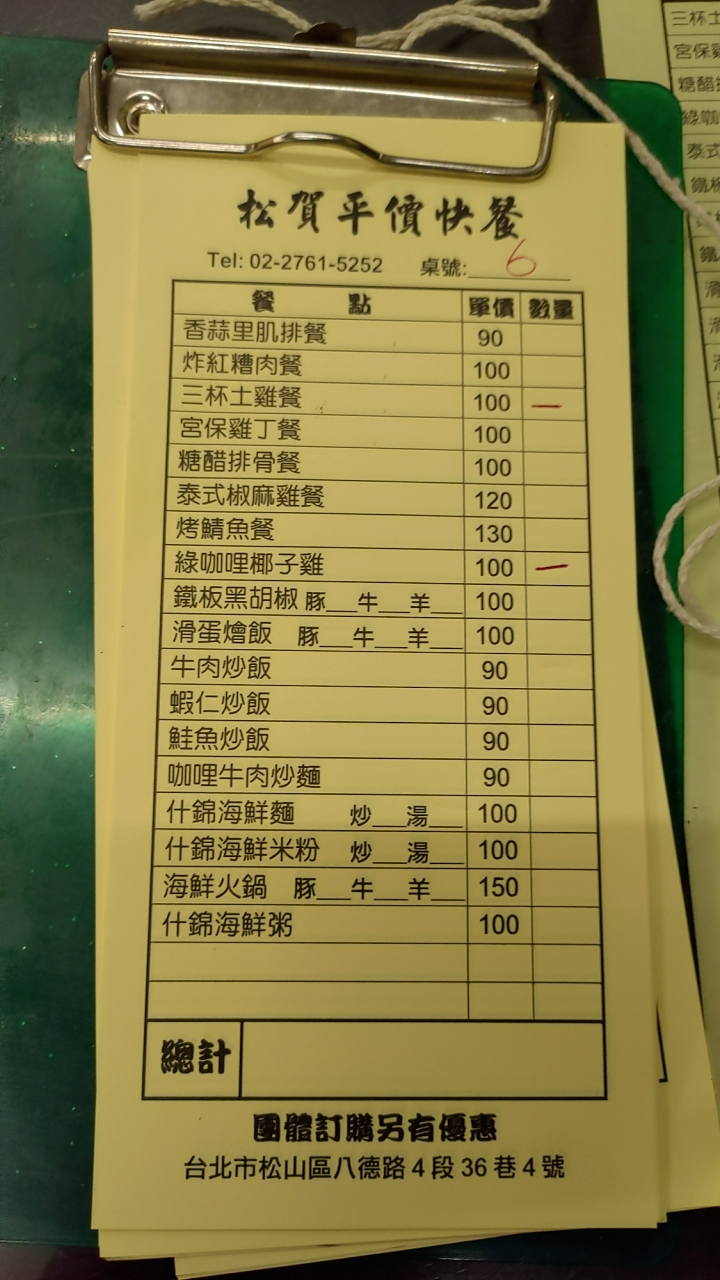 松賀平價快餐
Tel: 02-2761-5252 桌號: 6
餐點 單價 數量
香蒜里肌排餐 90
炸紅糟肉餐 100
三杯土雞餐 100 一
宮保雞丁餐 100
糖醋排骨餐 100
泰式椒麻雞餐 120
烤鯖魚餐 130
綠咖哩椰子雞 100 一
鐵板黑胡椒 豚__牛__羊__ 100
滑蛋燴飯 豚__牛__羊__ 100
牛肉炒飯 90
蝦仁炒飯 90
鮭魚炒飯 90
咖哩牛肉炒麵 90
什錦海鮮麵 炒__湯__ 100
什錦海鮮米粉 炒__湯__ 100
海鮮火鍋 豚__牛__羊__ 150
什錦海鮮粥 100
總計
團體訂購另有優惠
台北市松山區八德路4段36巷4號
三杯土
宮保
糖醋
綠咖
泰式
鐵板